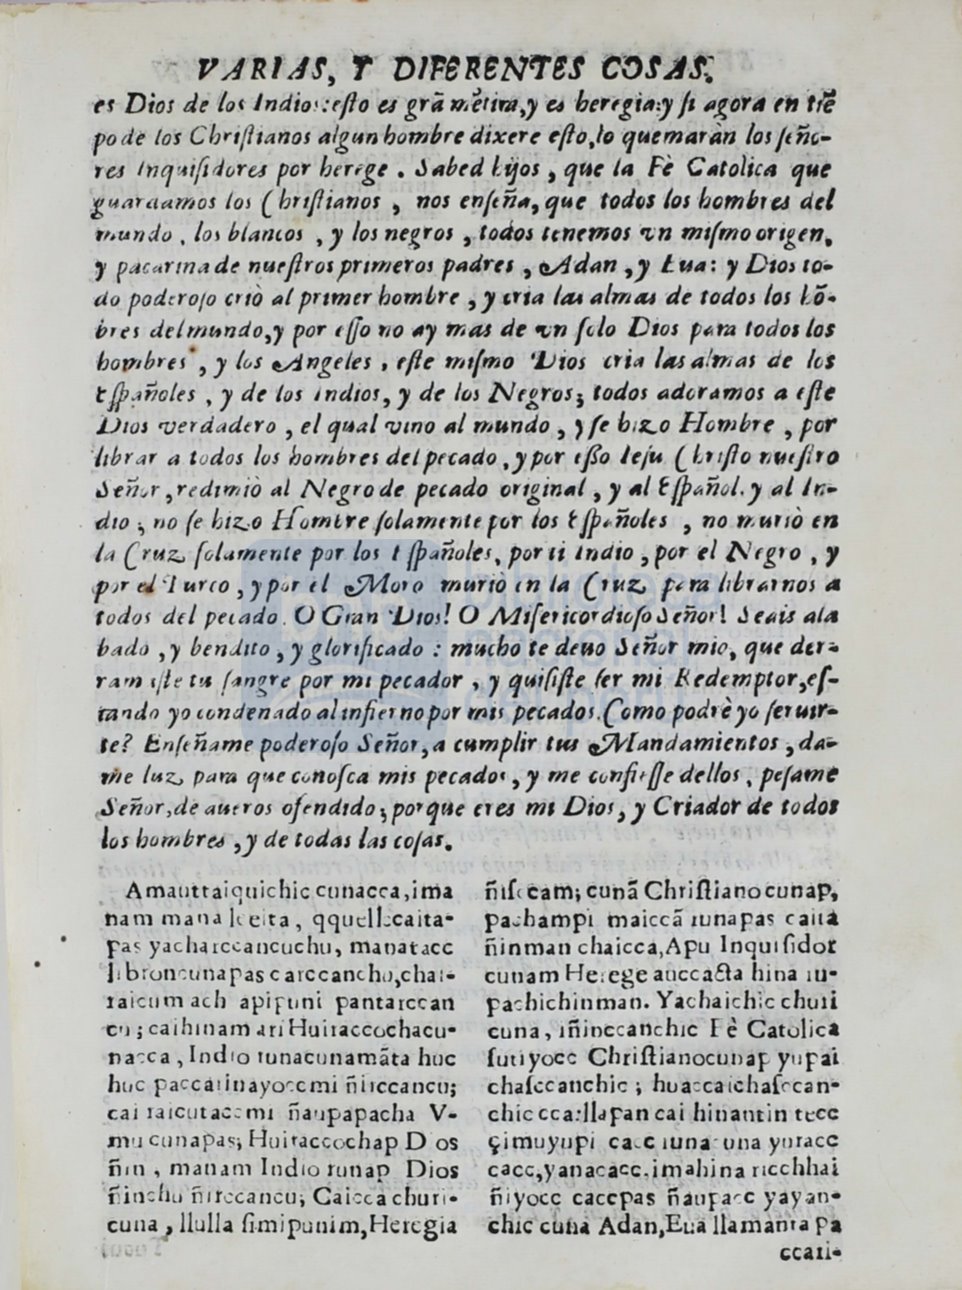 VARIAS, Y DIFERENTES COSAS.
es Dios de los Indios: esto es grã mẽtira, y es heregia: y si agora en tiẽ
po de los Christianos algun hombre dixere esto, lo quemaràn los seño-
res Inquisidores por herege. Sabed hijos, que la Fè Catolica que
guardamos los Christianos, nos enseña, que todos los hombres del
mundo, los blancos, y los negros, todos tenemos vn mismo origen,
y pacarina de nuestros primeros padres, Adan, y Eua: y Dios to-
do poderoso criò al primer hombre, y cria las almas de todos los hõ-
bres del mundo, y por esso no ay mas de vn solo Dios para todos los
hombres, y los Angeles, este mismo Dios cria las almas de los
Españoles, y de los indios, y de los Negros; todos adoramos a este
Dios verdadero, el qual vino al mundo, y se hizo Hombre, por
librar a todos los hombres del pecado, y por esso Iesu Christo nuestro
Señor, redimiò al Negro de pecado original, y al Español. y al In-
dio; no se hizo Hombre solamente por los Españoles, no muriò en
la Cruz solamente por los Españoles, por ti Indio, por el Negro, y
por el Turco, y por el Moro muriò en la Cruz para librarnos a
todos del pecado. O Gran Dios! O Misericordioso Señor! Seais ala
bado, y bendito, y glorificado: mucho te deuo Señor mio, que der-
ram iste tu sangre por mi pecador, y quisiste ser mi Redemptor, es-
tando yo condenado al infierno por mis pecados. Como podrè yo seruir-
te? Enseñame poderoso Señor, a cumplir tus Mandamientos, da-
me luz para que conosca mis pecados, y me confiesse dellos, pesame
Señor, de aueros ofendido; porque eres mi Dios, y Criador de todos
los hombres, y de todas las cosas.
Amauttaiquichic cunacca, ima
nam mana keita, qquellccaita-
pas yacharccancuchu, manatacc
libroncunapas carccancho, chai-
raicum ach apipuni pantarccan
cu; caihinam ari Huiraccochacu-
nacca, Indio runacunamãta huc
huc paccarinayoccmi ñirccancu;
cai raicutaccmi ñaupapacha V-
mu cunapas; Huiraccochap Dios
ñin, manam Indio runap Dios
ñinchu ñirccancu; Caicca churi-
cuna, llulla simipunim, Heregia
ñisccam; cunã Christiano cunap,
pachampi maiccã runapas caita
ñinman chaicca, Apu Inquisidor
cunam Herege auccacta hina ru-
pachichinman. Yachaichic churi
cuna, iñinccanchic Fè Catolica
sutiyocc Christianocunap yupai
chasccanchic; huaccaichasccan-
chic ccallapan cai hinantin tecc
çimuyupi cacc runa cuna yuracc
cacc, yanacacc, imahina ricchhai
ñiyocc caccpas ñaupacc yayan-
chic cuna Adan, Eua llamanta pa
ccari-